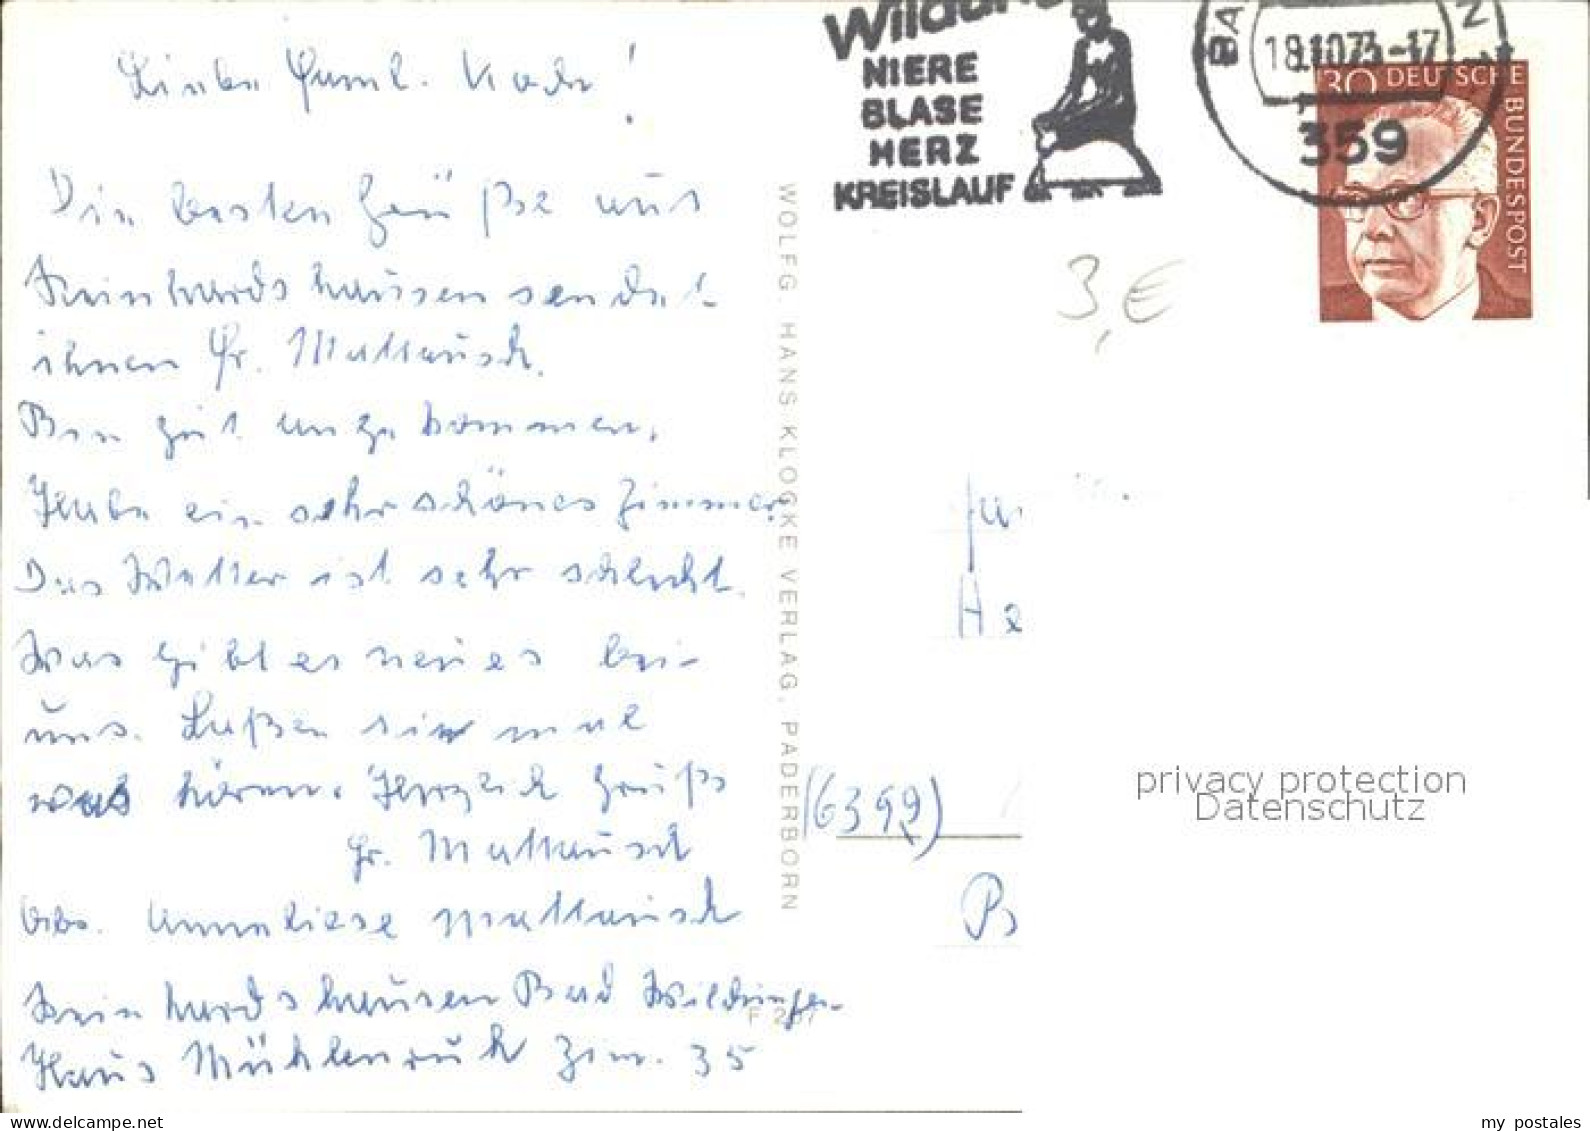 Liebe Faml. Kade!
Die besten Grüße aus
Reinhardshausen sendet
ihnen Fr. Mattausch.
Bin gut angekommen,
Habe ein sehr schönes Zimmer.
Das Wetter ist sehr schlecht.
Was gibt es neues bei
uns. Laßen sie mal
was hören. Herzlich Grüße
Fr. Mattausch
Abs. Anneliese Mattausch
Reinhardshausen Bad Wildungen
Haus Mühlenruh Zim. 35
WOLFG. HANS KLOCKE VERLAG, PADERBORN
NIERE
BLASE
HERZ
KREISLAUF
359
30 DEUTSCHE BUNDESPOST
3,€
(6399)
privacy protection
Datenschutz
www.delcampe.net
my_postales